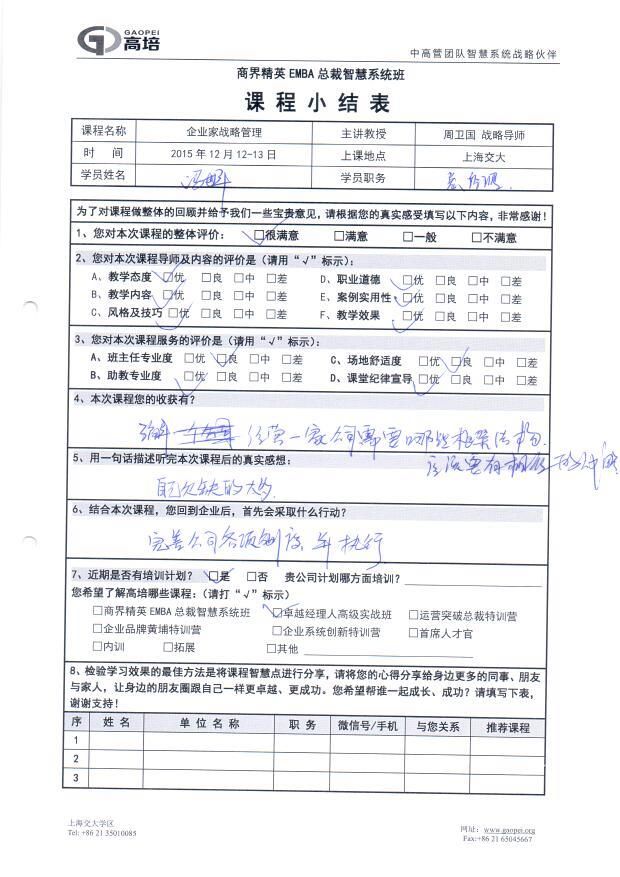 GAOPEI
高培
中高管团队智慧系统战略伙伴
商界精英 EMBA 总裁智慧系统班
课 程 小 结 表
课程名称 企业家战略管理 主讲教授 周卫国 战略导师
时 间 2015 年 12 月 12-13 日 上课地点 上海交大
学员姓名 学员职务
为了对课程做整体的回顾并给予我们一些宝贵意见，请根据您的真实感受填写以下内容，非常感谢！
1、您对本次课程的整体评价： ☑很满意 □满意 □一般 □不满意
2、您对本次课程导师及内容的评价是（请用“√”标示）：
A、教学态度 ☑优 □良 □中 □差 D、职业道德 ☑优 □良 □中 □差
B、教学内容 ☑优 □良 □中 □差 E、案例实用性 ☑优 □良 □中 □差
C、风格及技巧 ☑优 □良 □中 □差 F、教学效果 ☑优 □良 □中 □差
3、您对本次课程服务的评价是（请用“√”标示）：
A、班主任专业度 □优 ☑良 □中 □差 C、场地舒适度 □优 ☑良 □中 □差
B、助教专业度 ☑优 □良 □中 □差 D、课堂纪律宣导 ☑优 □良 □中 □差
4、本次课程您的收获有？
经营一家公司需要哪些框架结构
5、用一句话描述听完本次课程后的真实感想：
自己欠缺的太多
6、结合本次课程，您回到企业后，首先会采取什么行动？
完善公司各项制度 执行
7、近期是否有培训计划？ ☑是 □否 贵公司计划哪方面培训？
您希望了解高培哪些课程：（请打“√”标示）
□商界精英 EMBA 总裁智慧系统班 ☑卓越经理人高级实战班 □运营突破总裁特训营
□企业品牌黄埔特训营 □企业系统创新特训营 □首席人才官
□内训 □拓展 □其他
8、检验学习效果的最佳方法是将课程智慧点进行分享，请将您的心得分享给身边更多的同事、朋友
与家人，让身边的朋友圈跟自己一样更卓越、更成功。您希望帮谁一起成长、成功？请填写下表，
谢谢支持！
序 姓 名 单 位 名 称 职 务 微信号/手机 与您关系 推荐课程
1
2
3
上海交大学区
Tel: +86 21 35010085
网址：www.gaopei.org
Fax:+86 21 65045667